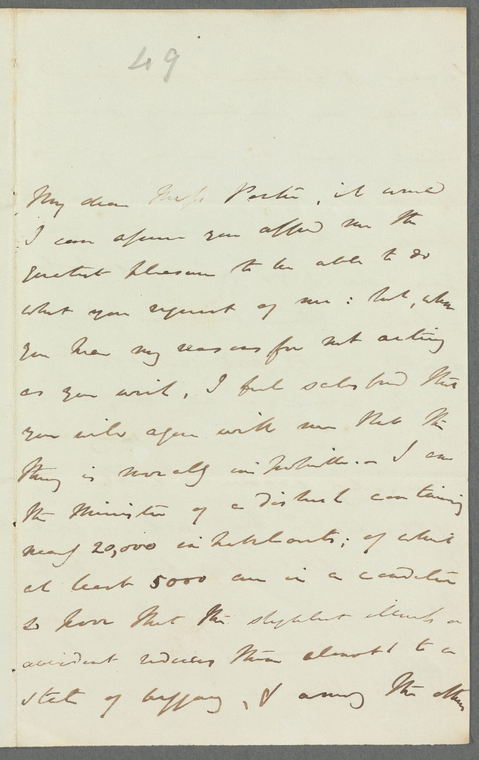 49
My dear Miss Porter, it would
I can assure you afford me the
greatest pleasure to be able to do
what you request of me: but, when
you hear my reasons for not acting
as you wish, I feel satisfied that
you will agree with me that the
thing is morally impossible. - I am
the Minister of a District containing
nearly 20,000 inhabitants; of which
at least 5000 are in a condition
so poor that the slightest illness or
accident reduces them almost to a
state of beggary, & among the others